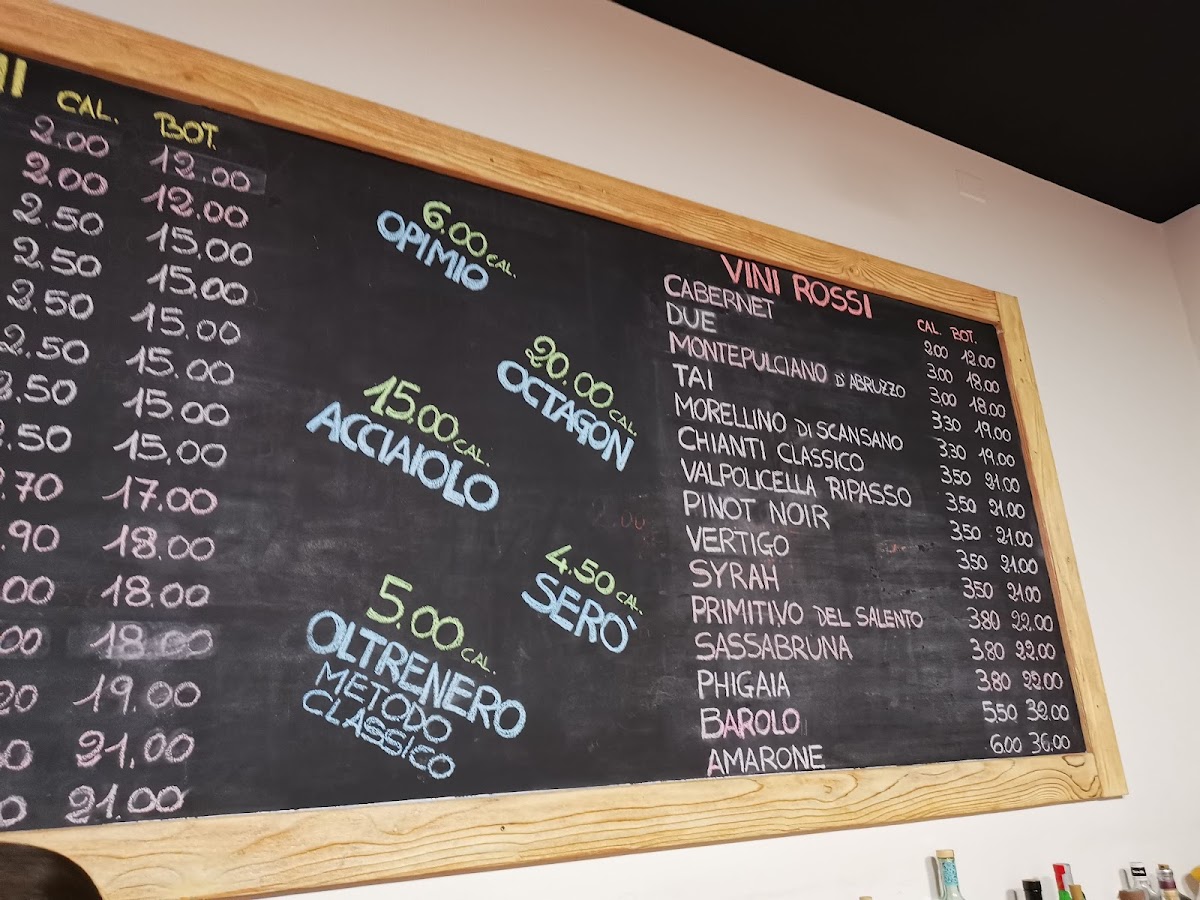 CAL. BOT.
2.00 12.00
2.00 12.00
2.50 15.00
2.50 15.00
2.50 15.00
2.50 15.00
2.50 15.00
2.50 15.00
.70 17.00
.90 18.00
.00 18.00
.00 18.00
20 19.00
21.00
21.00
6.00 CAL.
OPIMIO
20.00 CAL.
OCTAGON
15.00 CAL.
ACCIAIOLO
4.50 CAL.
SERO`
5.00 CAL.
OLTRENERO
METODO
CLASSICO
VINI ROSSI
CAL. BOT.
CABERNET 2.00 12.00
DUE 3.00 18.00
MONTEPULCIANO D'ABRUZZO 3.00 18.00
TAI 3.30 19.00
MORELLINO DI SCANSANO 3.30 19.00
CHIANTI CLASSICO 3.50 21.00
VALPOLICELLA RIPASSO 3.50 21.00
PINOT NOIR 3.50 21.00
VERTIGO 3.50 21.00
SYRAH 3.50 21.00
PRIMITIVO DEL SALENTO 3.80 22.00
SASSABRUNA 3.80 22.00
PHIGAIA 3.80 22.00
BAROLO 5.50 32.00
AMARONE 6.00 36.00